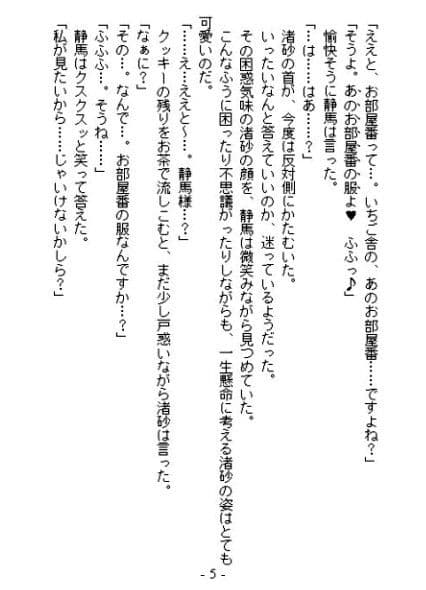 「ええと、お部屋番って…。いちご舎の、あのお部屋番……ですよね？」
「そうよ。あのお部屋番の服よ♥　ふふっ♪」
愉快そうに静馬は言った。
「……は……はあ……？」
渚砂の首が、今度は反対側にかたむいた。
いったいなんと答えていいのか、迷っているようだった。
その困惑気味の渚砂の顔を、静馬は微笑みながら見つめていた。
こんなふうに困ったり不思議がったりしながらも、一生懸命に考える渚砂の姿はとても
可愛いのだ。
「……え…ええと～…。静馬様…？」
「なぁに？」
クッキーの残りをお茶で流しこむと、まだ少し戸惑いながら渚砂は言った。
「その…。なんで…。お部屋番の服なんですか…？」
「ふふふ…。そうね……」
静馬はクスクスッと笑って答えた。
「私が見たいから……じゃいけないかしら？」
- 5 -